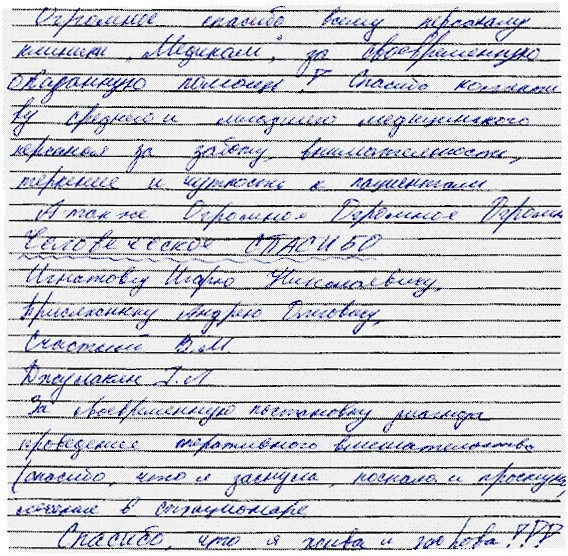 Огромное спасибо всему персоналу
клиники "Медикам", за своевременную
оказанную помощь! Спасибо коллекти
ву среднего и младшего медицинского
персонала за заботу, внимательность,
терпение и чуткость к пациентам
А также Огромное Огромное Огромн
Человеческое СПАСИБО
Игнатову Игорю Николаевичу,
Андрею
Счастный В.М.
За своевременную постановку диагноза
проведение оперативного вмешательства
(спасибо, что я заснула, поспала и проснулась,
лечение в стационаре
Спасибо, что я жива и здорова!!!